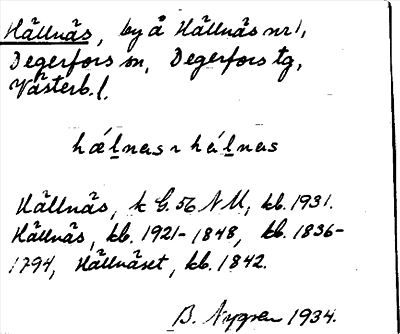 Hällnäs, by å Hällnäs nr 1,
Degerfors sn, Degerfors tg,
Västerb. l.
hǽḻnas ~ háḻnas
Hällnäs, k G. 56 N M, kb. 1931.
Hällnäs, kb. 1921-1848, kb. 1836-
1794, Hällnäset, kb. 1842.
B. Nygren 1934.